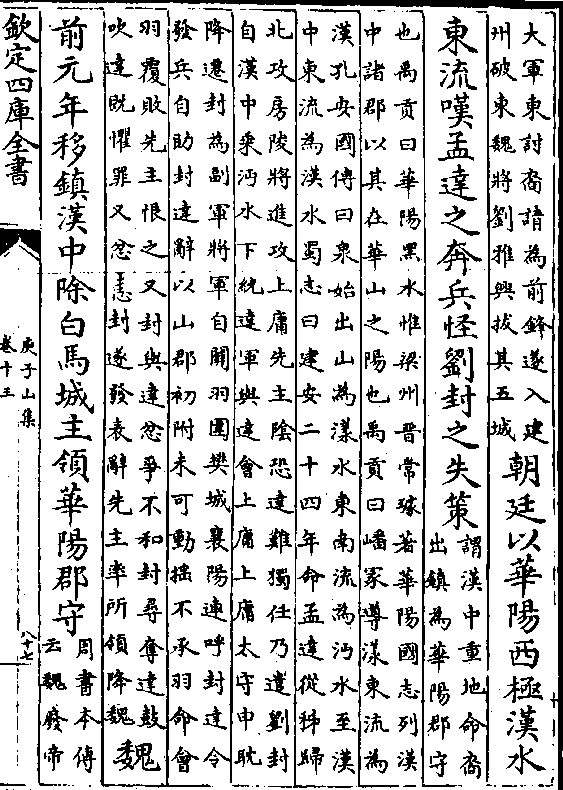 大軍東討裔請為前鋒遂入建
州破東魏將劉雅興拔其五城
朝廷以華陽西極漢水
東流嘆孟達之奔兵怪劉封之失策
謂漢中重地命裔
出鎮為華陽郡守
也禹貢曰華陽黑水惟梁州晉常璩著華陽國志列漢
中諸郡以其在華山之陽也禹貢曰嶓冢導漾東流為
漢孔安國傳曰泉始出山為漾水東南流為沔水至漢
中東流為漢水蜀志曰建安二十四年命孟達從秭歸
北攻房陵將進攻上庸先主陰恐達難獨任乃遣劉封
自漢中乘沔水下統達軍與達會上庸上庸太守申耽
降遷封為副軍將軍自關羽圍樊城襄陽連呼封達令
發兵自助封達辭以山郡初附未可動搖不承羽命會
羽覆敗先主恨之又封與達忿爭不和封尋奪達鼓
吹達既懼罪又忿恚封遂發表辭先主率所領降魏
魏
前元年移鎮漢中除白馬城主領華陽郡守
周書本傳
云魏廢帝
欽定四庫全書
庾子山集
卷十三
八十七